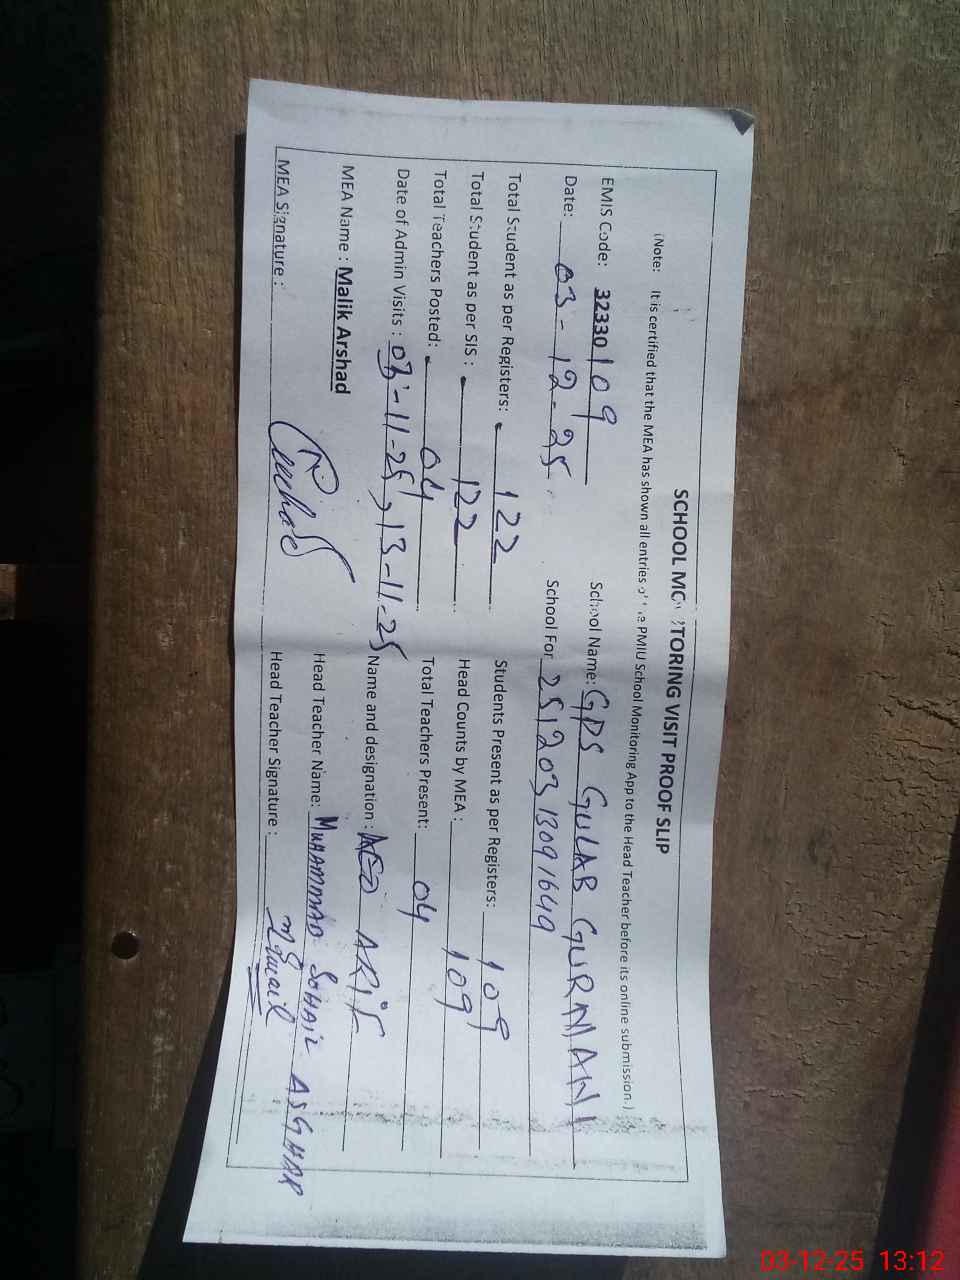 SCHOOL MONITORING VISIT PROOF SLIP
(Note: It is certified that the MEA has shown all entries of the PMIU School Monitoring App to the Head Teacher before its online submission.)
EMIS Code: 32330109 School Name: GPS GULAB GURMANI
Date: 03-12-25 School For 25120313091649
Total Student as per Registers: 122 Students Present as per Registers: 109
Total Student as per SIS : 122 Head Counts by MEA : 109
Total Teachers Posted: 04 Total Teachers Present: 04
Date of Admin Visits : 03-11-25, 13-11-25 Name and designation : AEO ARIF
MEA Name : Malik Arshad Head Teacher Name: MUHAMMAD SOHAIL ASGHAR
MEA Signature : Head Teacher Signature :
03-12-25 13:12